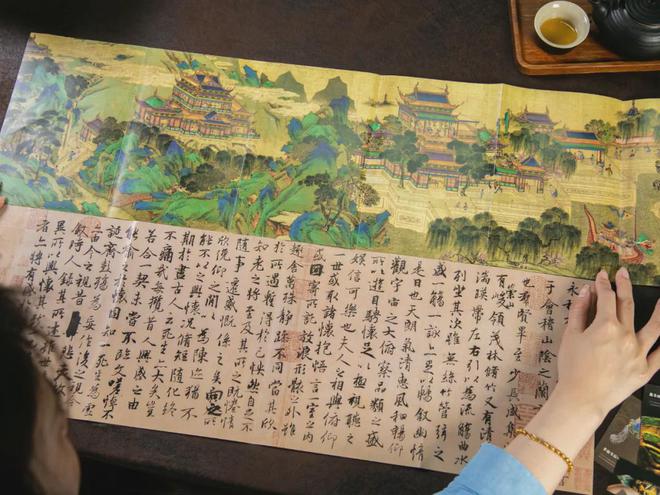 永和
于會稽山陰之蘭
也羣賢畢至少長咸集
有崇山峻領茂林脩竹又有清
湍暎帶左右引以為流觴曲水
列坐其次雖無絲竹管弦之
盛一觴一詠亦足以暢敘幽情
是日也天朗氣清惠風和暢仰
觀宇宙之大俯察品類之盛
所以遊目騁懷足以極視聽之
娛信可樂也夫人之相與俯仰
一世或取諸懷抱悟言一室之內
或因寄所託放浪形骸之外雖
趣舍萬殊靜躁不同當其欣
於所遇蹔得於己怏然自足不
知老之將至及其所之既惓情
隨事遷感慨係之矣向之所
欣俛仰之閒以為陳迹猶不
能不以之興懷況脩短隨化終
期於盡古人云死生亦大矣豈
不痛哉每攬昔人興感之由
若合一契未嘗不臨文嗟悼不
能喻之於懷固知一死生為虛
誕齊彭殤為妄作後之視今
亦由今之視昔悲夫故
敘時人錄其所述雖世
異所以興懷其致
者亦將有感